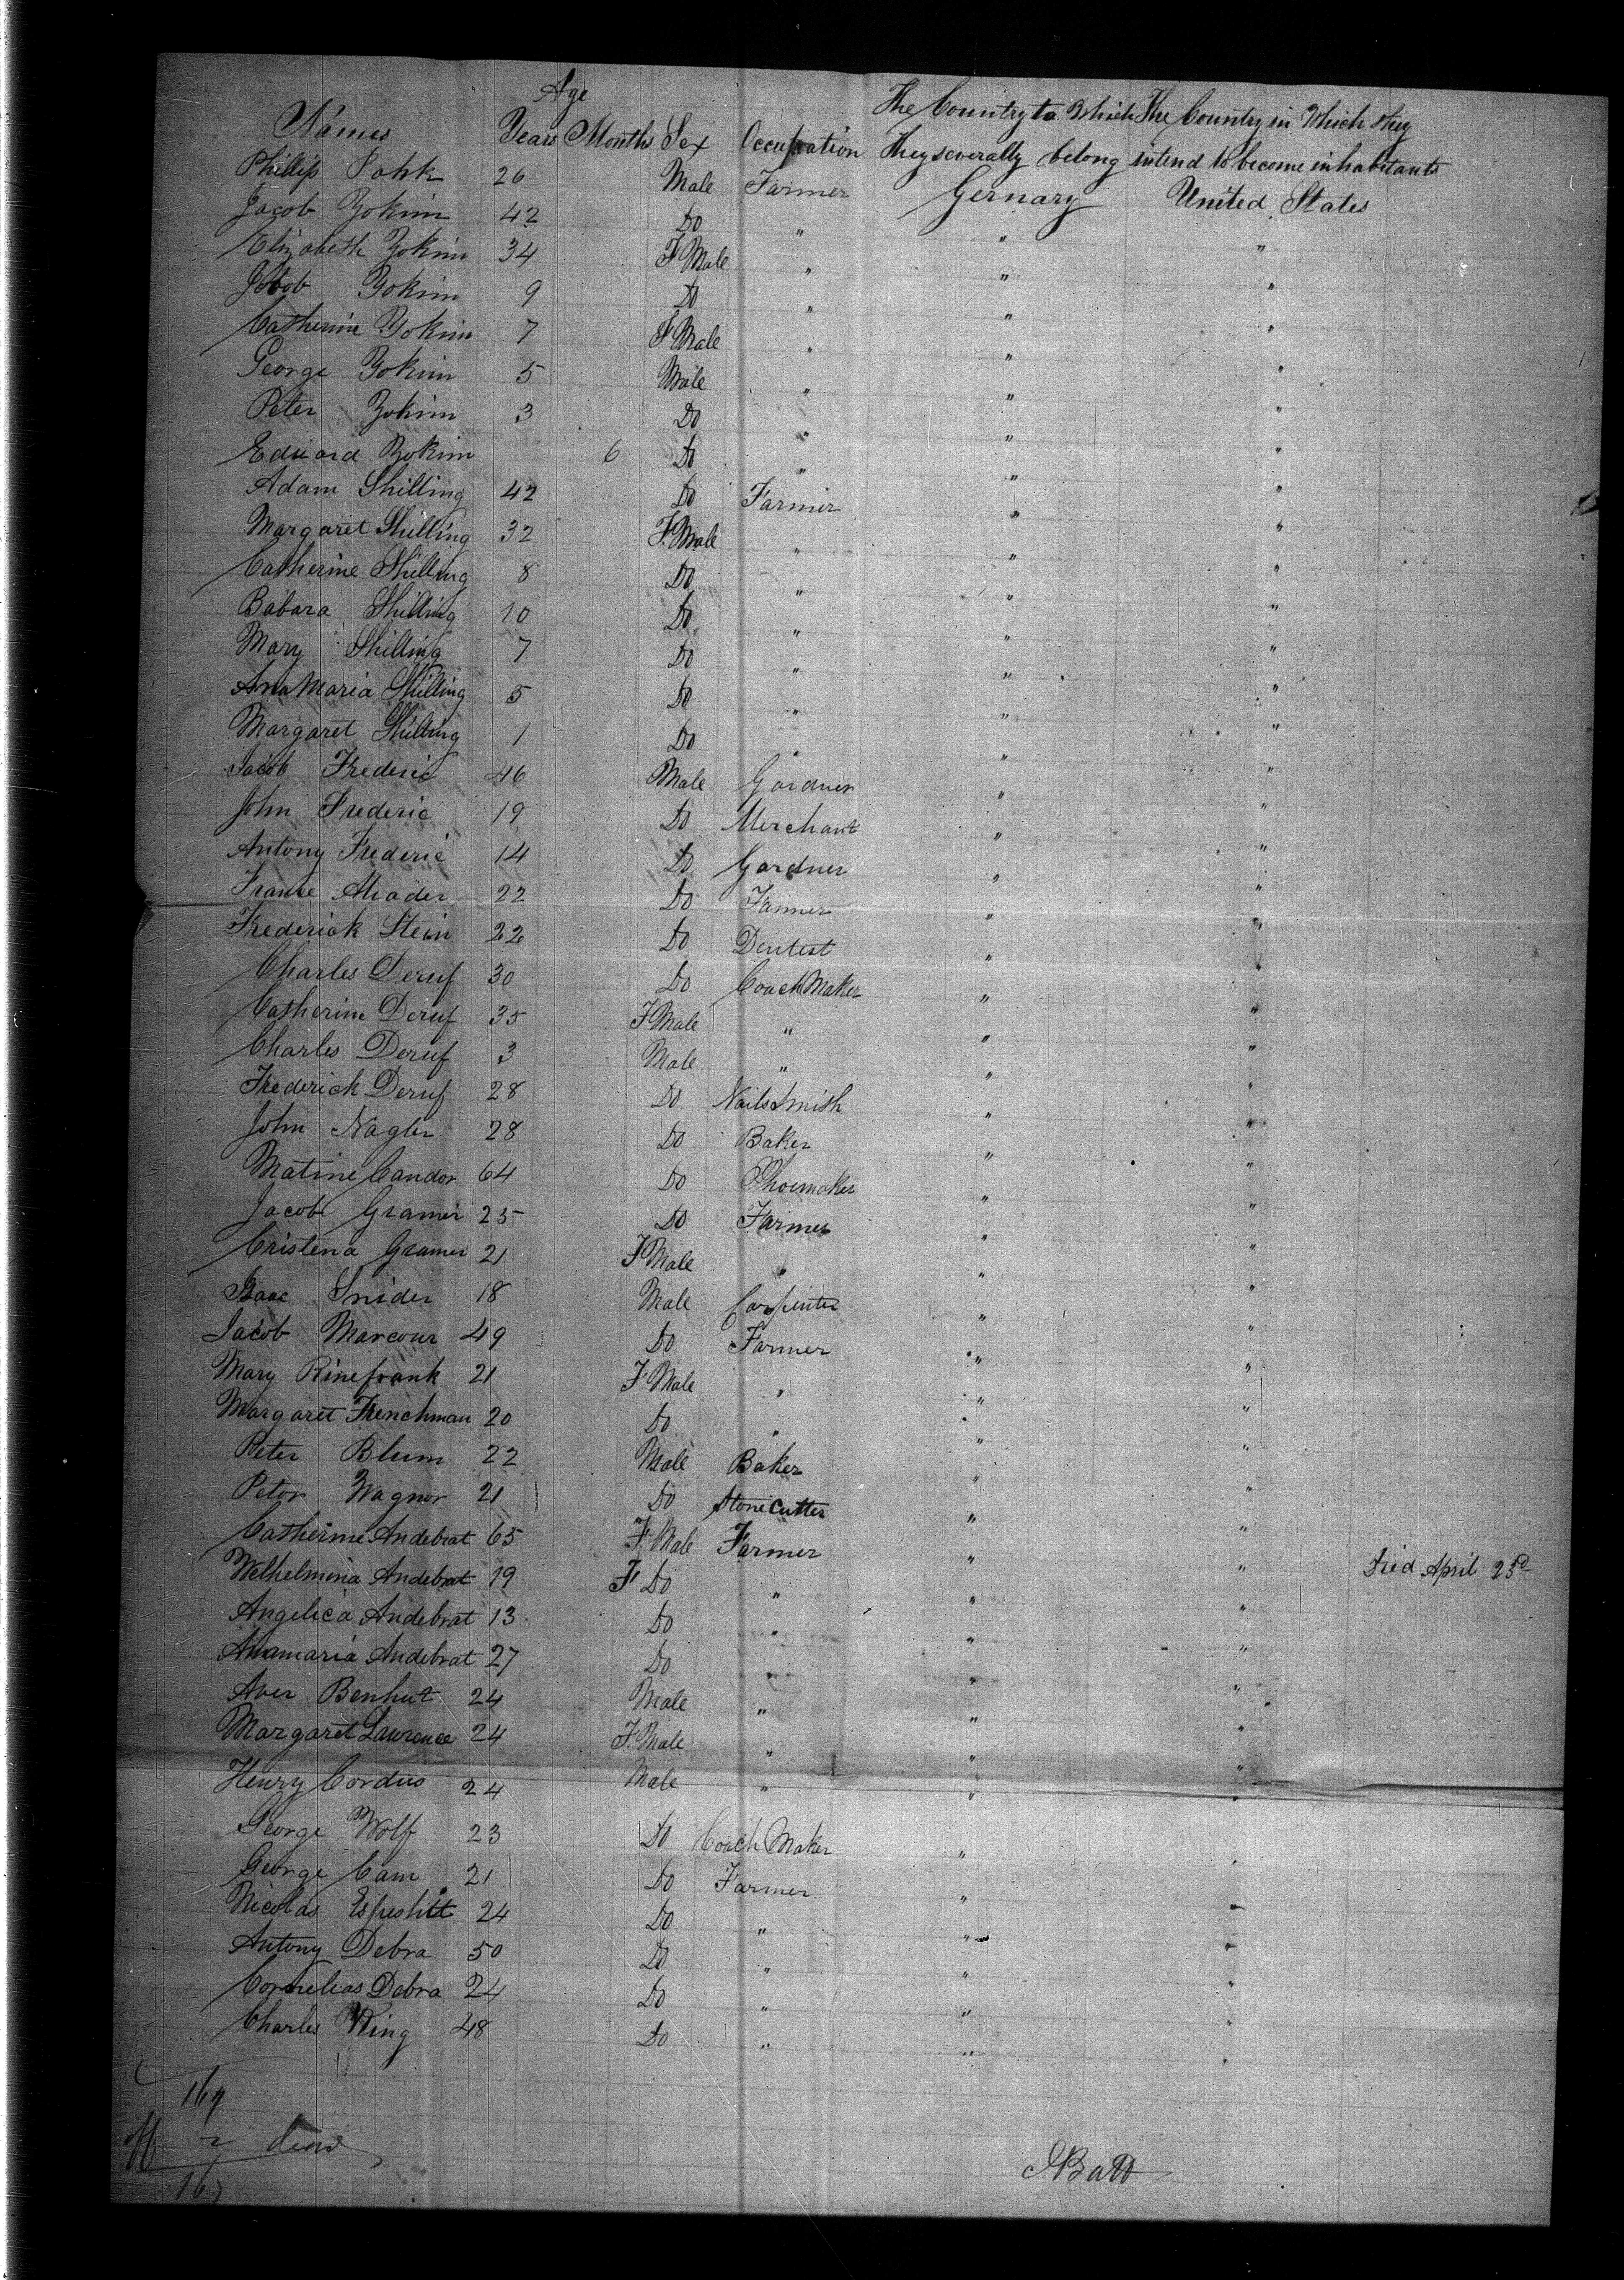 Age
The Country to Which The Country in Which they
Names Years Months Sex Occupation They severally belong intend to become inhabitants
Phillip 26 Male Farmer Gernary United States
Jacob Yokim 42 Do " " "
Elizabeth Yokim 34 F Male " " "
Jobob Yokim 9 Do " " "
Catherine Yokim 7 F Male " " "
George Yokim 5 Male " " "
Peter Yokim 3 Do " " "
Edward Yokim 6 Do " " "
Adam Shilling 42 Do Farmer " "
Margaret Shilling 32 F. Male " " "
Catherine Shilling 8 Do " " "
Babara Shilling 10 Do " " "
Mary Shilling 7 Do " " "
Ana Maria Shilling 5 Do " " "
Margaret Shilling 1 Do " " "
Jacob Frederic 46 Male Gardner " "
John Frederic 19 Do Merchant " "
Antony Frederic 14 Do Gardner " "
22 Do Farmer " "
Frederick Stein 22 Do Dentist " "
Charles Deruf 30 Do Coach Maker " "
Catherine Deruf 35 F Male " " "
Charles Deruf 3 Male " " "
Frederick Deruf 28 Do Nail Smith " "
John Nagler 28 Do Baker " "
Matine Candor 64 Do Shoemaker " "
Jacob Gramer 25 Do Farmer " "
Cristena Gramer 21 F Male " " "
Isaac Snider 18 Male Carpenter " "
Jacob Marcour 49 Do Farmer " "
Mary Rinefrank 21 F Male " " "
Margaret Frenchman 20 Do " " "
Peter Blum 22 Male Baker " "
Peter Wagnor 21 Do Stone Cutter " "
Catherine Andebrat 65 F. Male Farmer " " Died April 23d
Welhelmina Andebrat 19 F Do " " "
Angelica Andebrat 13 Do " " "
Anamaria Andebrat 27 Do " " "
Aver Benhut 24 Male " " "
Margaret Lawrence 24 F. Male " " "
Henry Cordus 24 Male " " "
George Wolf 23 Do Coach Maker " "
George Cam 21 Do Farmer " "
Nicolas 24 Do " " "
Antony Debra 50 Do " " "
Cornelias Debra 24 Do " " "
Charles King 48 Do " " "
169
2
167